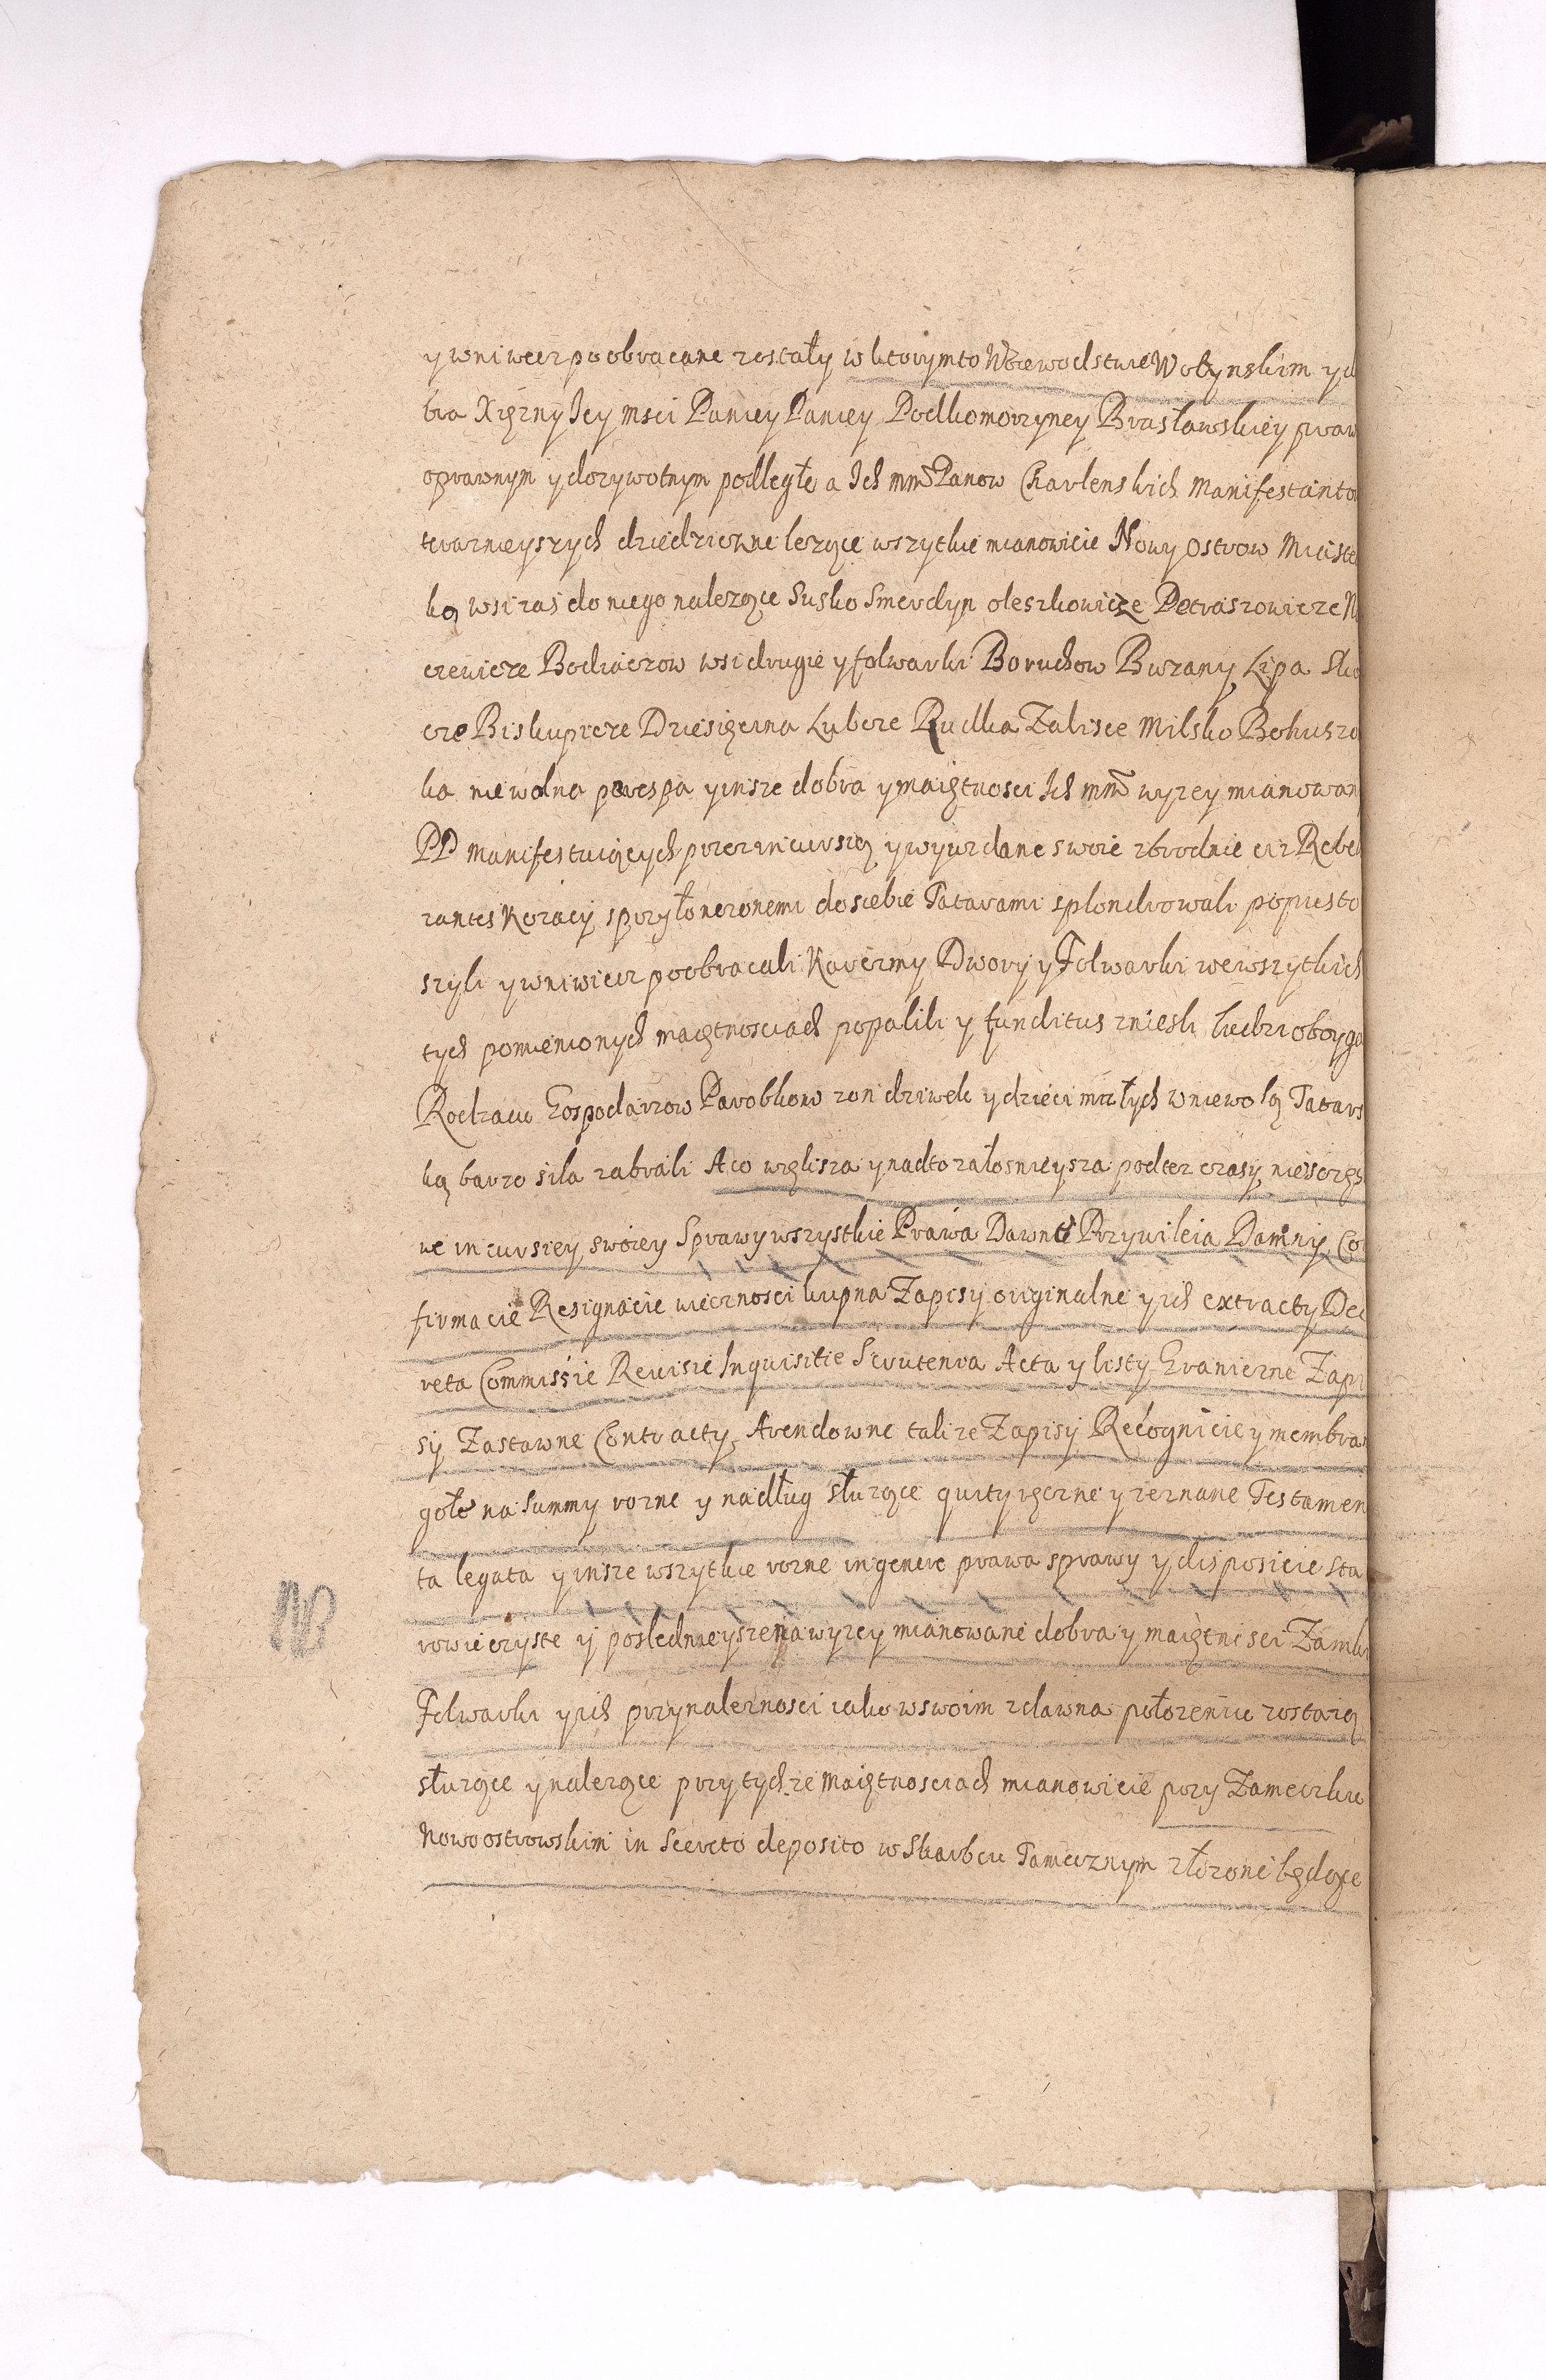 y wniwecz poobracane zostały w ktorymto Woiewodstwie Wołynskim y do
bra Xiężny Jey msci Paniey Paniey Podkomorzyney Brasławskiey praw
oprawnym y dozywotnym podległe a Ich mm Panow Charlenskich Manifestanto
teraznieyszych dziedziczne lezące wszytkie mianowicie Nowy Ostrow Miaste
ko wsi zas do niego nalezące Susko Smerdyn oleszkowicze Petraszowicze N
czewicze Bodiaczow wsi drugie y folwarki Boruchow Buzany Lipa Sko
cze Biskupicze Dziesięcina Lubcze Rudka Zalisce Milsko Bohuszo
ka niewolna perespa y insze dobra y maiętnosci Ich mm wyzey mianowan
PP manifestuiących przez incursią y wyuzdane swoie zbrodnie ciz Rebel
zantes Kozacy z przyłączonemi do siebie Tatarami splondrowali popusto
szyli y wniwiecz poobracali Karczmy Dwory y Folwarki we wszytkich
tych pomienionych maiętnosciach popalili y funditus zniesli ludzi oboyga
Rodzaiu Gospodarzow Parobkow zon dziwek y dzieci małych w niewolą Tatars
ką barzo siła zabrali A co większa y nadto załosnieysza podtez czasy nieszczęs
ne incursiey swoiey Sprawy wszystkie Prawa Dawne Przywileia Daniny Co
firmacie Resignacie wiecznosci kupna Zapisy originalne y ich extracty Dec
reta Commissie Reuisie Inquisitie Scrutenia Acta y listy Graniczne Zapi
sy Zastawne Contracty Arendowne takze Zapisy Recognicie y membra
gołe na Summy rozne y nadług słuzące quity ręczne y zeznane Testamen
ta legata y insze wszytkie rozne in genere prawa sprawy y disposicie sta
rowieczyste y poslednieysze na wyzey mianowane dobra y maiętnisci Zamki
Folwarki y ich przynaleznosci iako w swoim zdawna położeniu zostaią
słuzące y nalezące przy tychze Maiętnosciach mianowicie przy Zameczku
Nowoostrowskim in Secreto deposito w Skarbcu Tamecznym złozone będące
NB